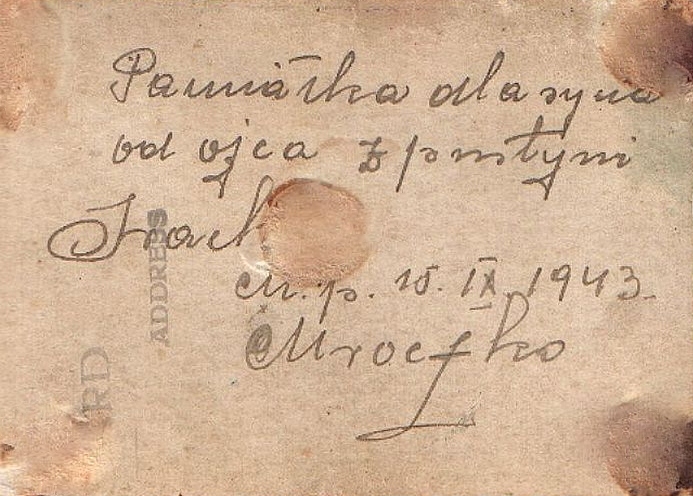 Pamiątka dla syna
od ojca z pustyni
Irack
M.p. 15. IX. 1943.
Mroczko
ADDRESS
RD